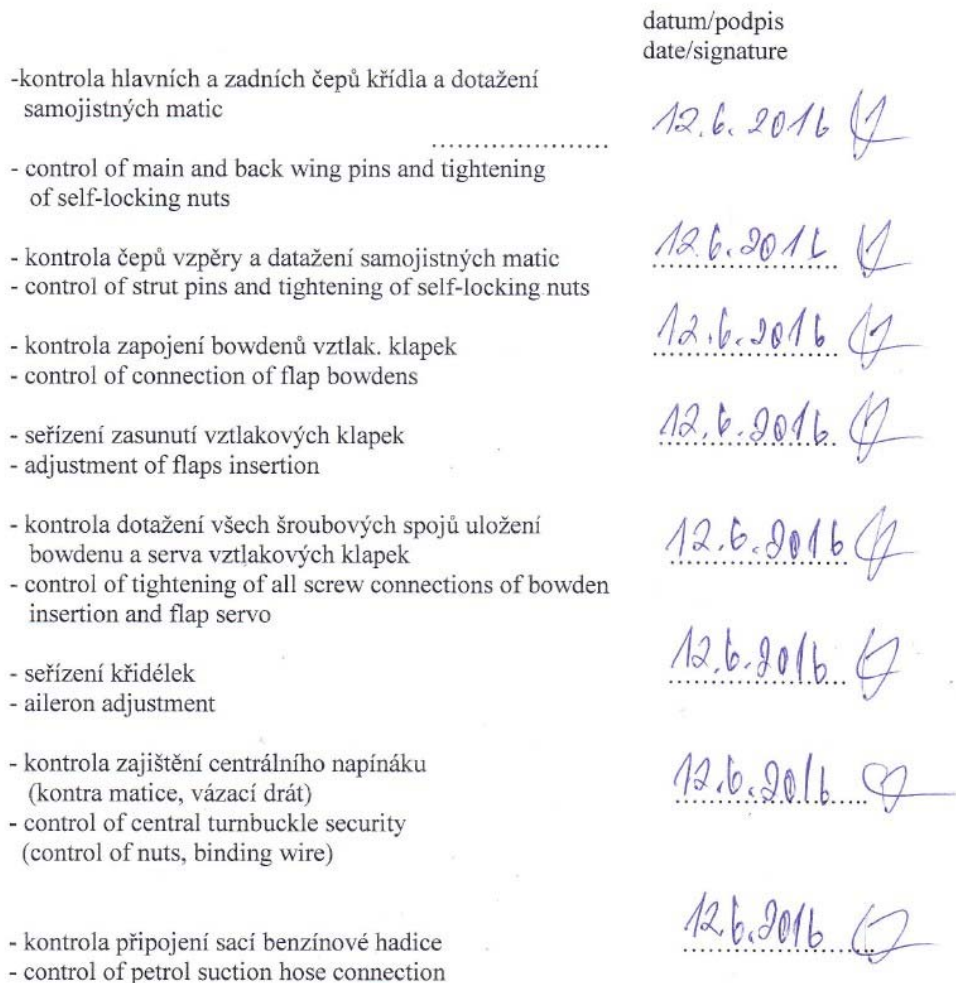 datum/podpis
date/signature
-kontrola hlavních a zadních čepů křídla a dotažení
samojistných matic
12.6.2016
.....................
- control of main and back wing pins and tightening
of self-locking nuts
- kontrola čepů vzpěry a datažení samojistných matic
12.6.2016
- control of strut pins and tightening of self-locking nuts
- kontrola zapojení bowdenů vztlak. klapek
12.6.2016
- control of connection of flap bowdens
- seřízení zasunutí vztlakových klapek
12.6.2016
- adjustment of flaps insertion
- kontrola dotažení všech šroubových spojů uložení
bowdenu a serva vztlakových klapek
12.6.2016
- control of tightening of all screw connections of bowden
insertion and flap servo
- seřízení křidélek
12.6.2016
- aileron adjustment
- kontrola zajištění centrálního napínáku
(kontra matice, vázací drát)
12.6.2016
- control of central turnbuckle security
(control of nuts, binding wire)
- kontrola připojení sací benzínové hadice
12.6.2016
- control of petrol suction hose connection